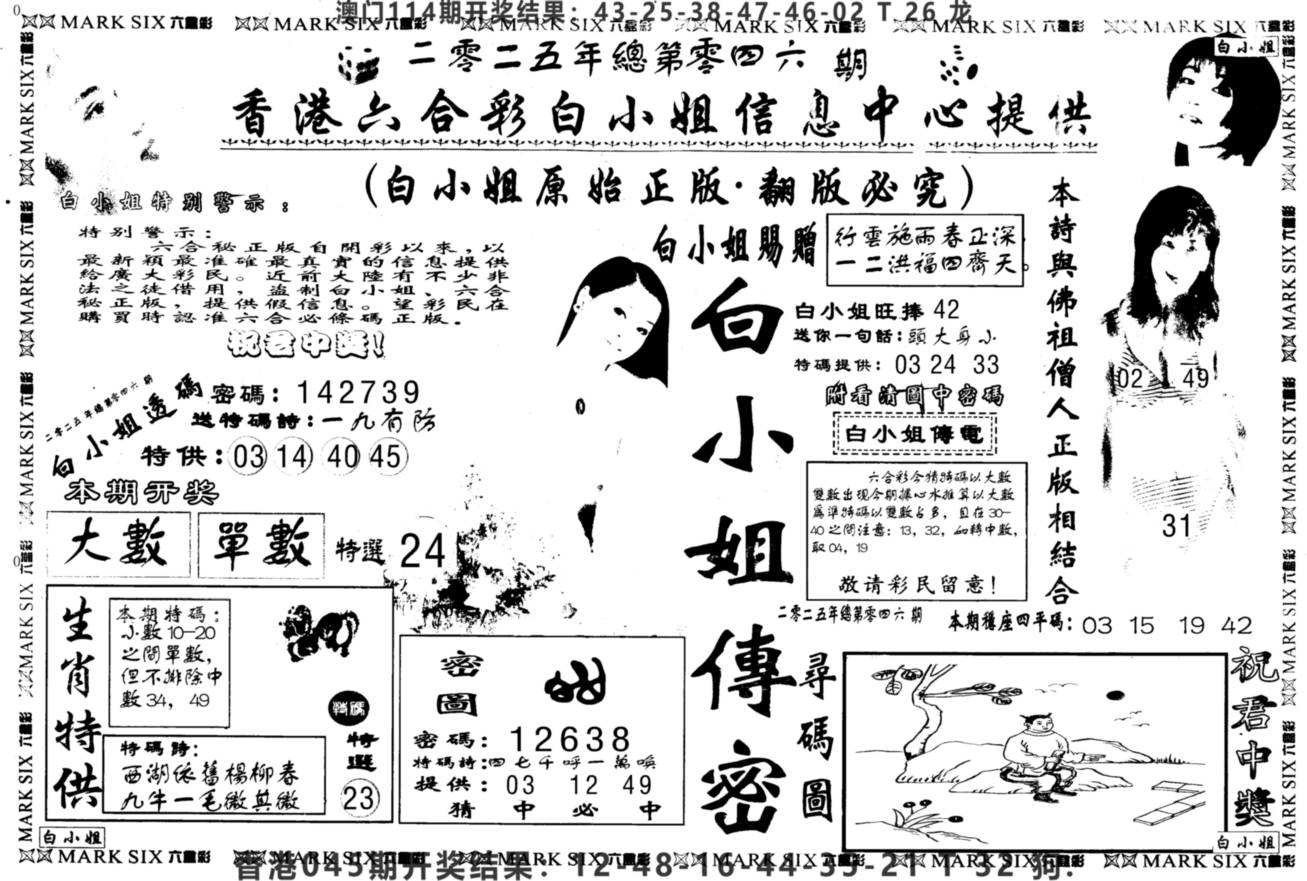 澳门114期开奖结果：43-25-38-47-46-02 T 26 龙
MARK SIX 六合彩
白小姐
二零二五年總第零四六期
香港六合彩白小姐信息中心提供
(白小姐原始正版·翻版必究)
白小姐特别警示：
特别警示：
六合秘正版自開彩以来,以
最新穎最准確最真實的信息提供
給廣大彩民。近前大陸有不少非
法之徒借用,盗制白小姐,六合
秘正版,提供假信息。望彩民在
購買時認准六合必條碼正版.
祝君中獎!
二零二五年總第零四六期
白小姐透碼
密碼：142739
送特碼詩：一九有防
特供：03 14 40 45
本期开奖
大數 單數 特選 24
白小姐賜贈
行雲施雨春正深
一二洪福四齊天。
白小姐旺捧 42
送你一句話：頭大身小
特碼提供：03 24 33
附看清圖中密碼
白小姐傳電
六合彩今猜特碼以大數
雙數出现今期據心水推算以大數
爲準特碼以雙數占多,且在30—
40之間注意：13,32,如轉中數,
取04,19
敬请彩民留意!
白小姐傳密
本詩與佛祖僧人正版相結合
02 49
31
二零二五年總第零四六期
本期穩座四平碼：03 15 19 42
生肖特供
本期特碼：
小數10—20
之間單數,
但不排除中
數34,49
特碼詩：
西湖依舊楊柳春
九牛一毛微其微
特碼
特選
23
密圖
密碼：12638
特碼詩：四七千呼一萬喚
提供：03 12 49
猜中必中
尋碼圖
祝君中獎
白小姐
白小姐
MARK SIX 六合彩
香港045期开奖结果：12-48-16-44-35-21 T 32 狗.